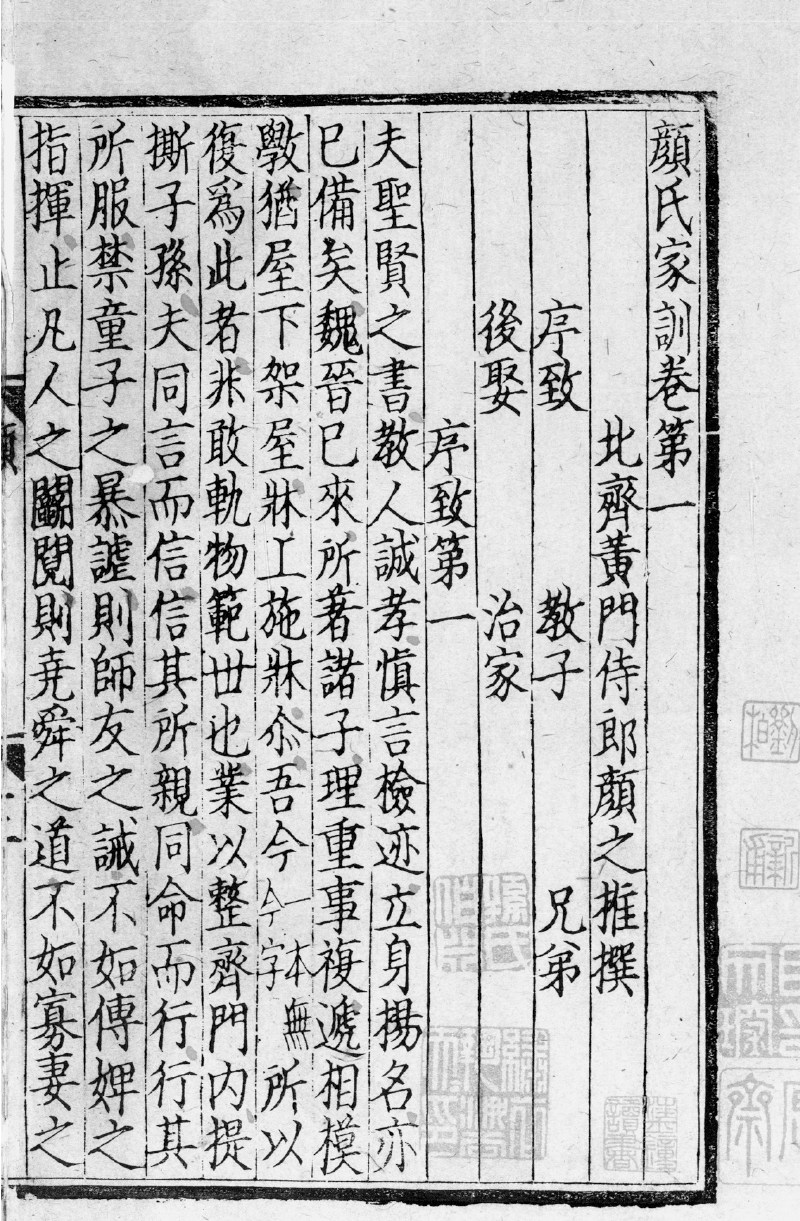 顔氏家訓卷第一
北齊黃門侍郎顔之推撰
序致 敎子 兄弟
後娶 治家
序致第一
夫聖賢之書敎人誠孝慎言檢迹立身揚名亦
已備矣魏晉已來所著諸子理重事複遞相模
斆猶屋下架屋牀上施牀尒吾今一本無今字所以
復爲此者非敢軌物範世也業以整齊門内提
撕子孫夫同言而信信其所親同命而行行其
所服禁童子之暴謔則師友之誡不如傅婢之
指揮止凡人之鬬鬩則堯舜之道不如寡妻之